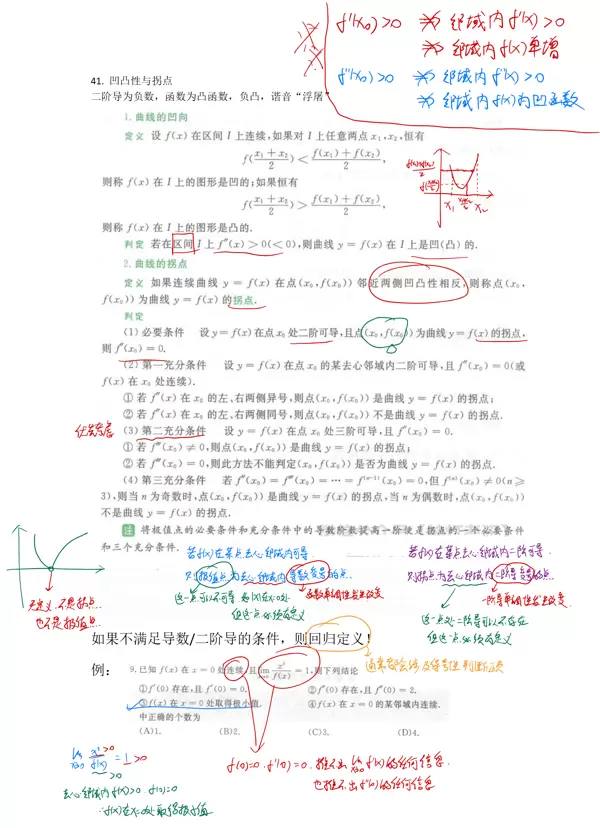 f'(x₀)>0 ⇏ 邻域内 f'(x)>0
⇏ 邻域内 f(x)单增
f''(x₀)>0 ⇏ 邻域内 f''(x)>0
⇏ 邻域内 f(x)为凹函数
41. 凹凸性与拐点
二阶导为负数，函数为凸函数，负凸，谐音“浮屠”
1. 曲线的凹向
定义 设 f(x) 在区间 I 上连续,如果对 I 上任意两点 x₁,x₂,恒有
f((x₁+x₂)/2) < (f(x₁)+f(x₂))/2,
则称 f(x) 在 I 上的图形是凹的;如果恒有
f((x₁+x₂)/2) > (f(x₁)+f(x₂))/2,
x₁ x₂
则称 f(x) 在 I 上的图形是凸的.
判定 若在区间 I 上 f''(x)>0(<0),则曲线 y=f(x) 在 I 上是凹(凸)的.
2. 曲线的拐点
定义 如果连续曲线 y=f(x) 在点(x₀,f(x₀)) 邻近两侧凹凸性相反,则称点(x₀,
f(x₀)) 为曲线 y=f(x) 的拐点.
判定
(1) 必要条件 设 y=f(x) 在点 x₀ 处二阶可导,且点(x₀,f(x₀)) 为曲线 y=f(x) 的拐点,
则 f''(x₀)=0.
(2) 第一充分条件 设 y=f(x) 在点 x₀ 的某去心邻域内二阶可导,且 f''(x₀)=0(或
f(x) 在 x₀ 处连续).
① 若 f''(x) 在 x₀ 的左、右两侧异号,则点(x₀,f(x₀)) 是曲线 y=f(x) 的拐点;
② 若 f''(x) 在 x₀ 的左、右两侧同号,则点(x₀,f(x₀)) 不是曲线 y=f(x) 的拐点.
优先考虑
(3) 第二充分条件 设 y=f(x) 在点 x₀ 处三阶可导,且 f''(x₀)=0.
① 若 f'''(x₀)≠0,则点(x₀,f(x₀)) 是曲线 y=f(x) 的拐点;
② 若 f'''(x₀)=0,则此方法不能判定(x₀,f(x₀)) 是否为曲线 y=f(x) 的拐点.
(4) 第三充分条件 若 f''(x₀)=f'''(x₀)=⋯=f⁽ⁿ⁻¹⁾(x₀)=0,但 f⁽ⁿ⁾(x₀)≠0(n≥
3),则当 n 为奇数时,点(x₀,f(x₀)) 是曲线 y=f(x) 的拐点,当 n 为偶数时,点(x₀,f(x₀))
不是曲线 y=f(x) 的拐点.
注 将极值点的必要条件和充分条件中的导数阶数提高一阶便是拐点的一个必要条件
和三个充分条件.
若f(x)在某点去心邻域内可导
则极值点为去心邻域内导数变号的点.
这一点可以不可导
但这一点必须有定义
函数单调性发生改变
若f(x)在某点去心邻域内二阶可导.
则拐点为去心邻域内二阶导变号的点.
一阶导单调性发生改变.
这一点处二阶导可以不存在
但这一点必须有定义
无定义.不是拐点.
也不是极值点.
如果不满足导数/二阶导的条件，则回归定义！
例：
9. 已知 f(x) 在 x=0 处连续,且 lim(x→0) x²/f(x) = 1,则下列结论
① f'(0)存在,且 f'(0)=0.
② f''(0)存在,且 f''(0)=2.
③ f(x) 在 x=0 处取得极小值.
④ f(x) 在 x=0 的某邻域内连续.
中正确的个数为
(A)1.
(B)2.
(C)3.
(D)4.
lim(x→0) x²/f(x) = 1 > 0
>0
>0
去心邻域内f(x)>0 f(0)=0
∴f(x)在x=0处取得极小值
f(0)=0. f'(0)=0. 推不出 lim(x→0) f'(x)的任何信息.
也推不出 f''(0)的任何信息